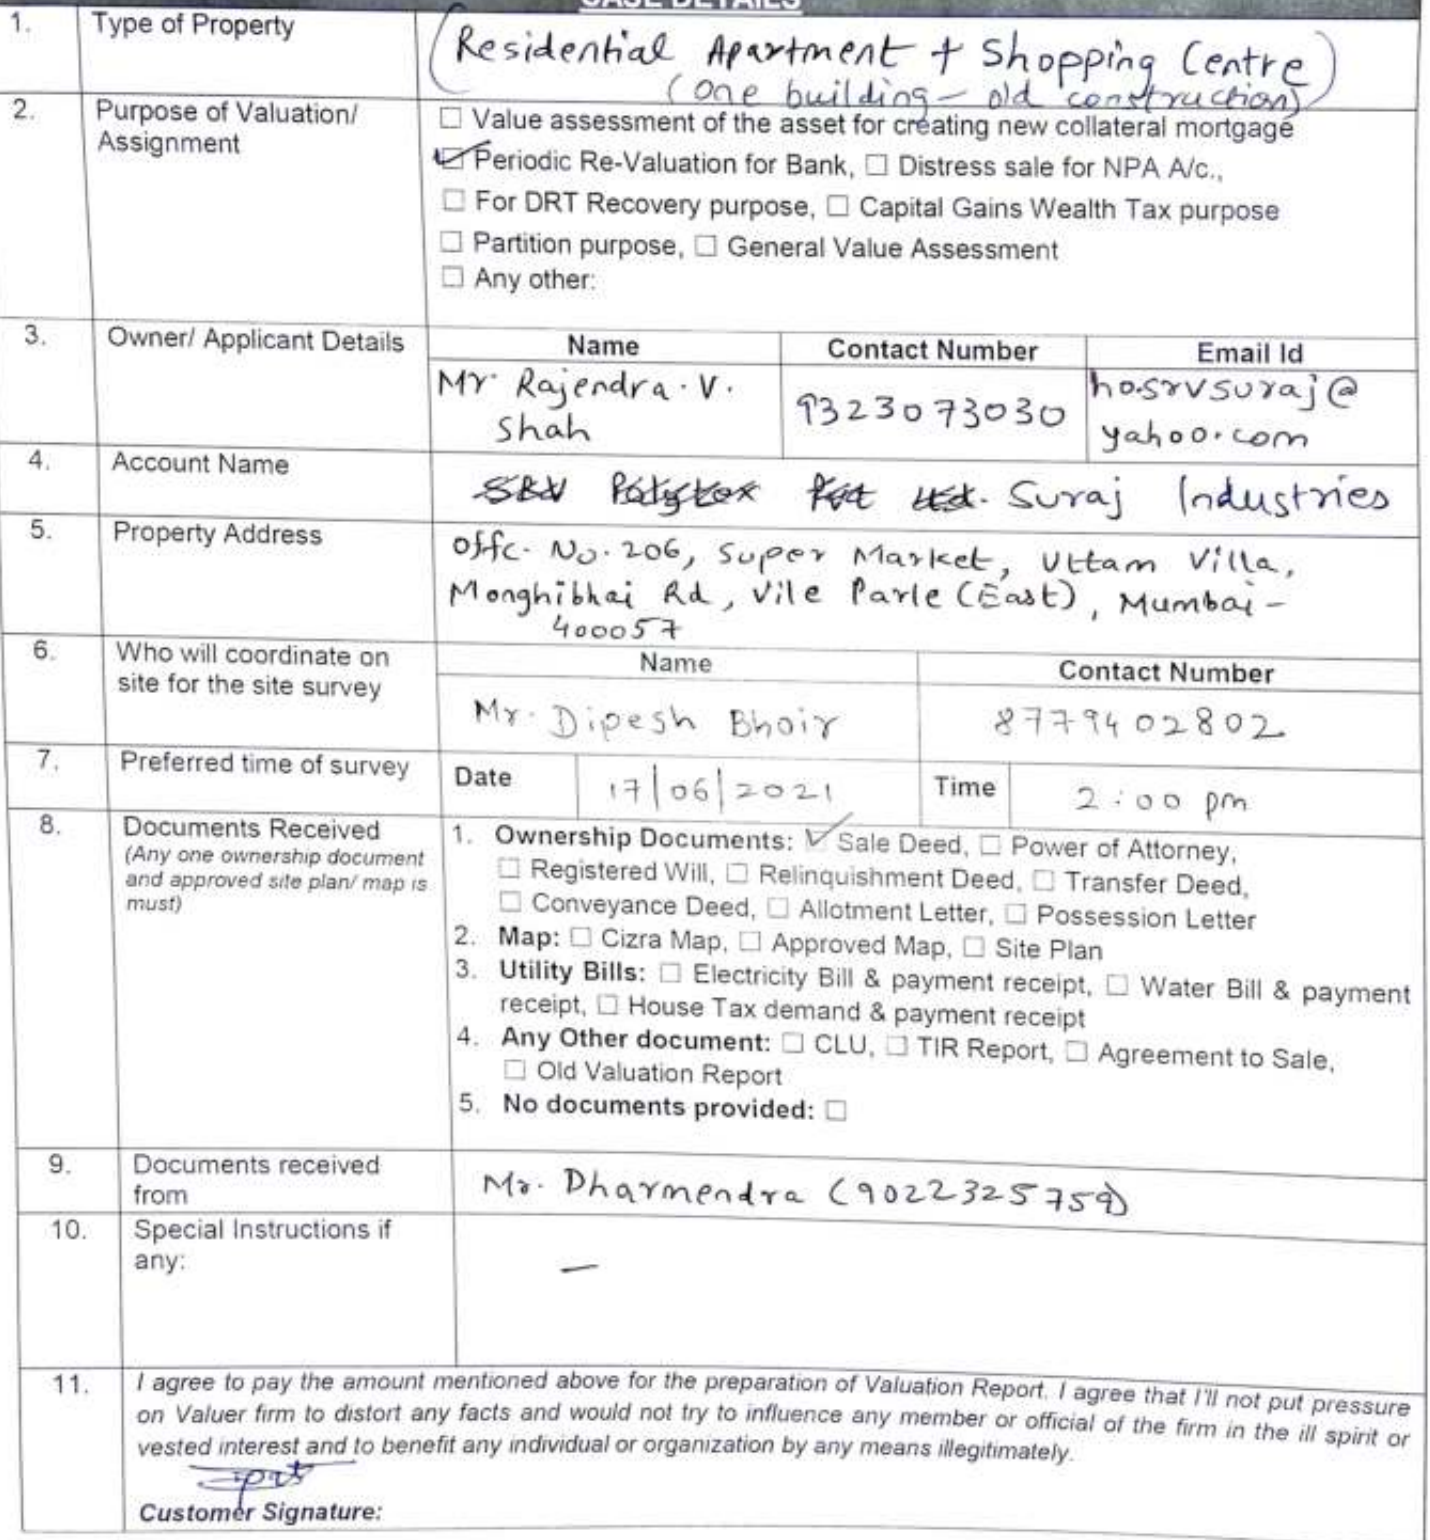 CASE DETAILS
1. Type of Property (Residential Apartment + Shopping Centre)
(one building - old construction)
2. Purpose of Valuation/ Assignment
☐ Value assessment of the asset for creating new collateral mortgage
☑ Periodic Re-Valuation for Bank, ☐ Distress sale for NPA A/c.,
☐ For DRT Recovery purpose, ☐ Capital Gains Wealth Tax purpose
☐ Partition purpose, ☐ General Value Assessment
☐ Any other:
3. Owner/ Applicant Details
Name Contact Number Email Id
Mr. Rajendra. V. Shah 9323073030 ho.srvsuraj@yahoo.com
4. Account Name SRV Polytex Pvt Ltd. Suraj Industries
5. Property Address
Offc. No. 206, Super Market, Uttam Villa,
Monghibhai Rd, Vile Parle (East), Mumbai -
400057
6. Who will coordinate on site for the site survey
Name Contact Number
Mr. Dipesh Bhoir 8779402802
7. Preferred time of survey Date 17/06/2021 Time 2:00 pm
8. Documents Received
(Any one ownership document
and approved site plan/ map is
must)
1. Ownership Documents: ☑ Sale Deed, ☐ Power of Attorney,
☐ Registered Will, ☐ Relinquishment Deed, ☐ Transfer Deed,
☐ Conveyance Deed, ☐ Allotment Letter, ☐ Possession Letter
2. Map: ☐ Cizra Map, ☐ Approved Map, ☐ Site Plan
3. Utility Bills: ☐ Electricity Bill & payment receipt, ☐ Water Bill & payment
receipt, ☐ House Tax demand & payment receipt
4. Any Other document: ☐ CLU, ☐ TIR Report, ☐ Agreement to Sale,
☐ Old Valuation Report
5. No documents provided: ☐
9. Documents received from Mr. Dharmendra (9022325759)
10. Special Instructions if any: –
11. I agree to pay the amount mentioned above for the preparation of Valuation Report. I agree that I'll not put pressure
on Valuer firm to distort any facts and would not try to influence any member or official of the firm in the ill spirit or
vested interest and to benefit any individual or organization by any means illegitimately.
Customer Signature: